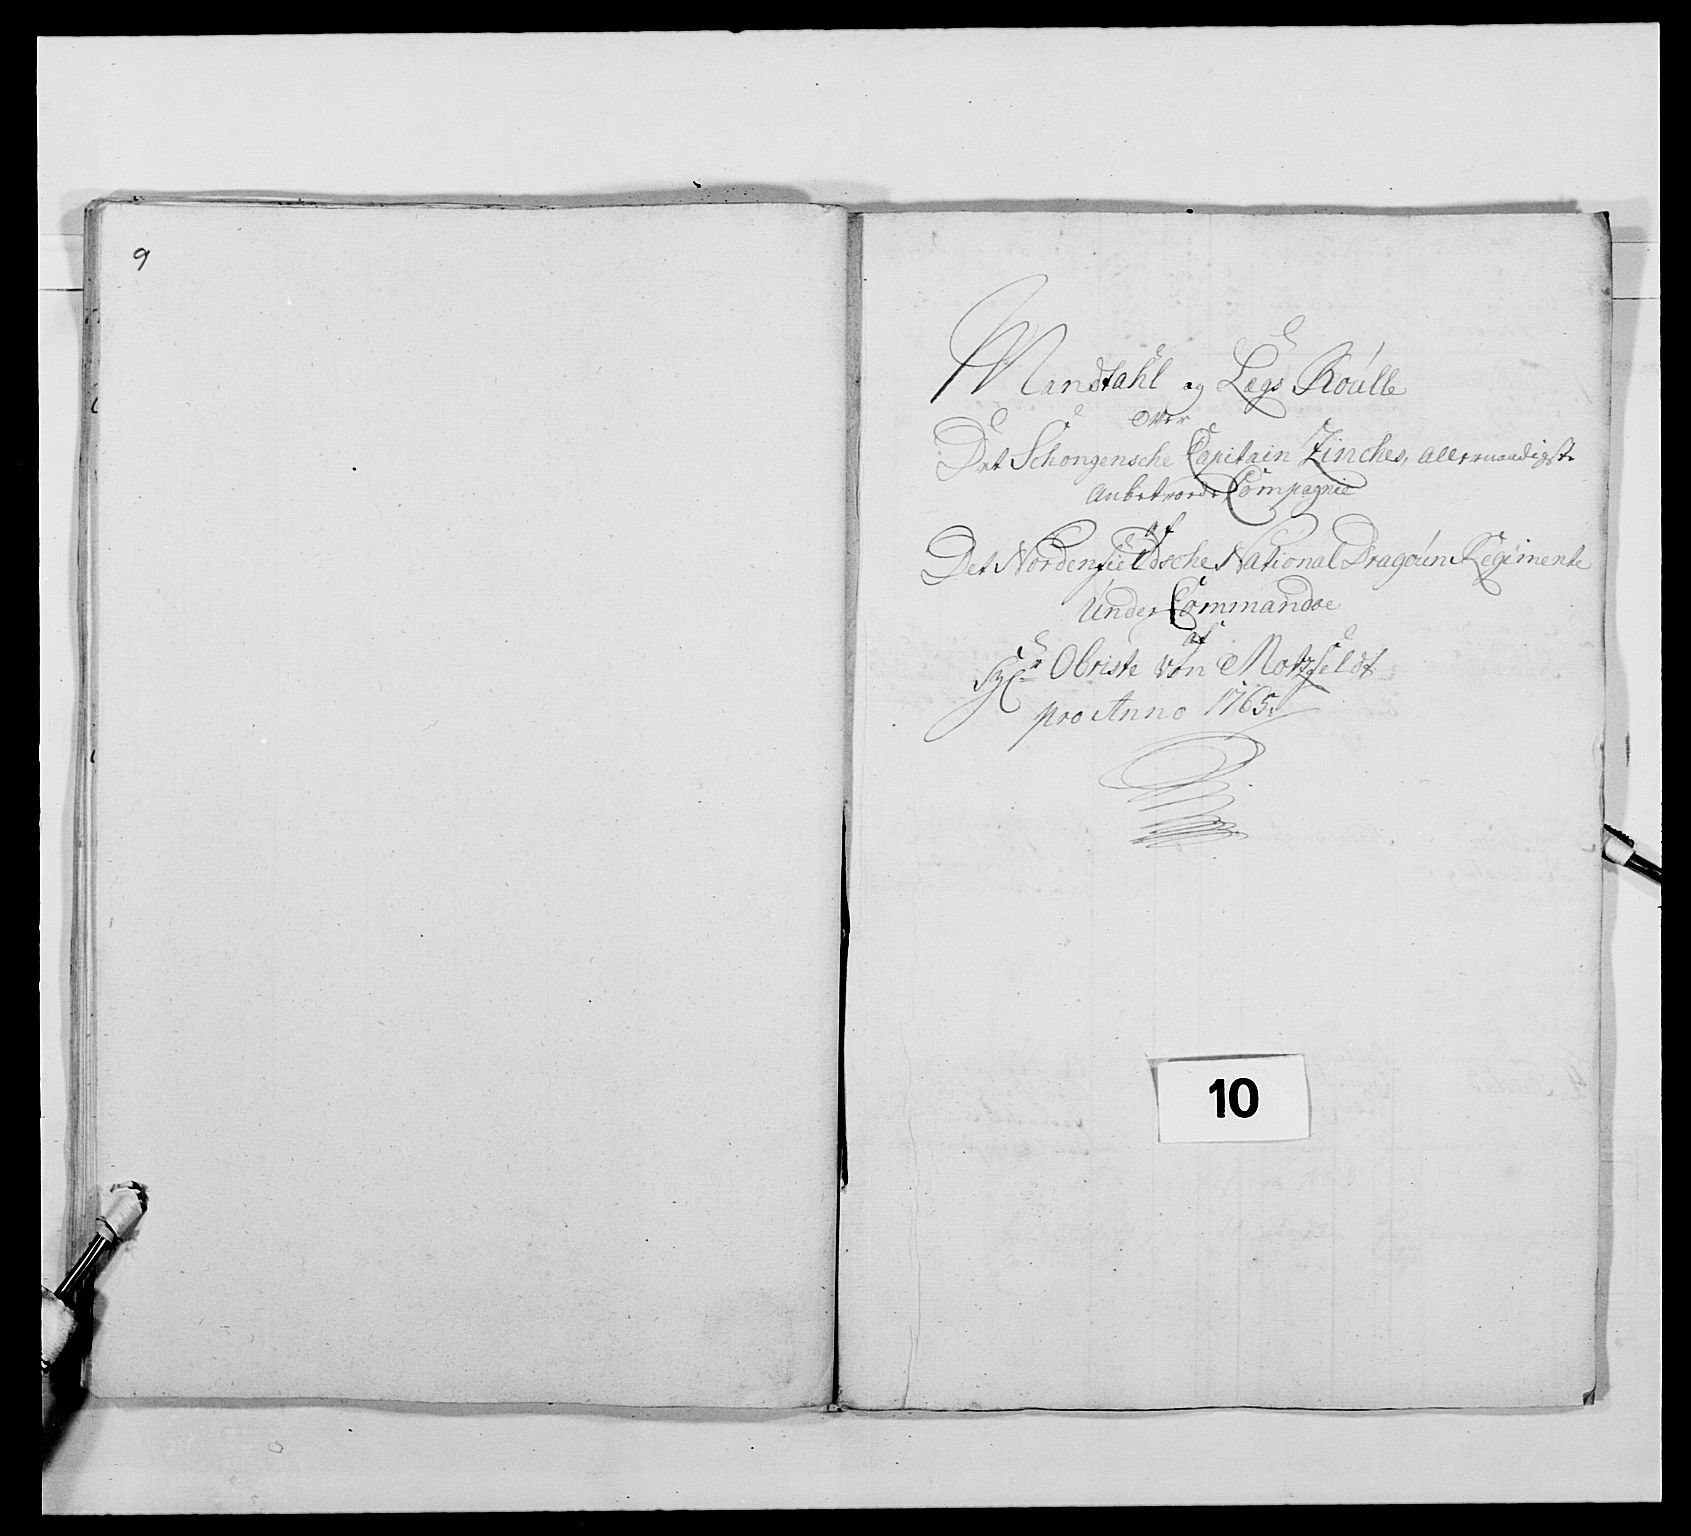 9
Mandtahl og Lægs Roúlle
over
Det Schongensche Capitain Zinches, allernaadigst
Anbetroede Compagnie
af
Det Nordenfieldsche National Dragoún Regimente
Únder Commandoe
af
Hr Obriste von Motzfeldt
pro Anno 1765.
10